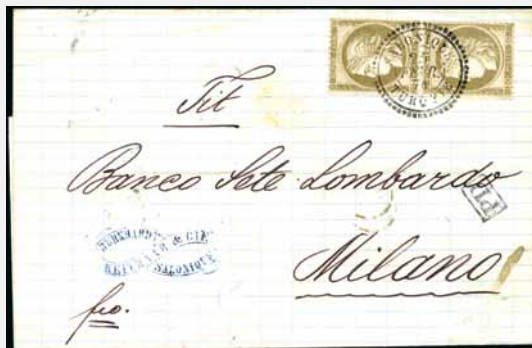 SALONIQUE
TURQUIE
Tit
Banco Sete Lombardo
PD
& CIE
SALONIQUE
Milano
fco.